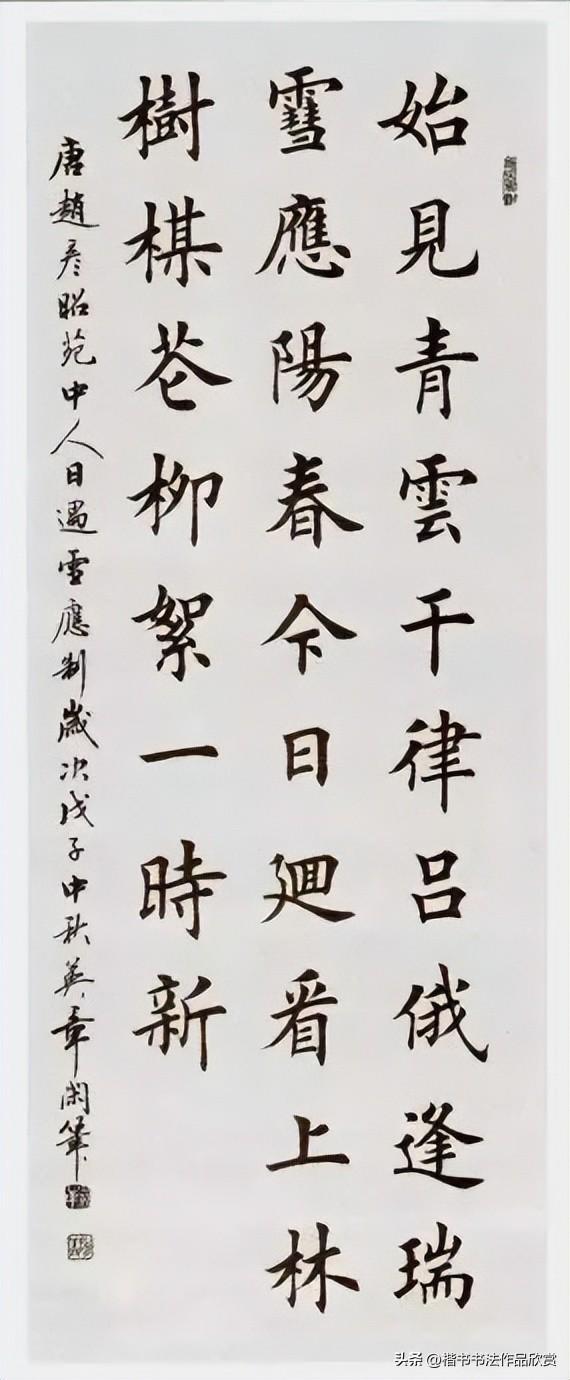 始見青雲干律呂俄逢瑞
雪應陽春今日廻看上林
樹楳花柳絮一時新
唐趙彦昭苑中人日遇雪應制歲次戊子中秋英章閑筆
头条 @楷书书法作品欣赏